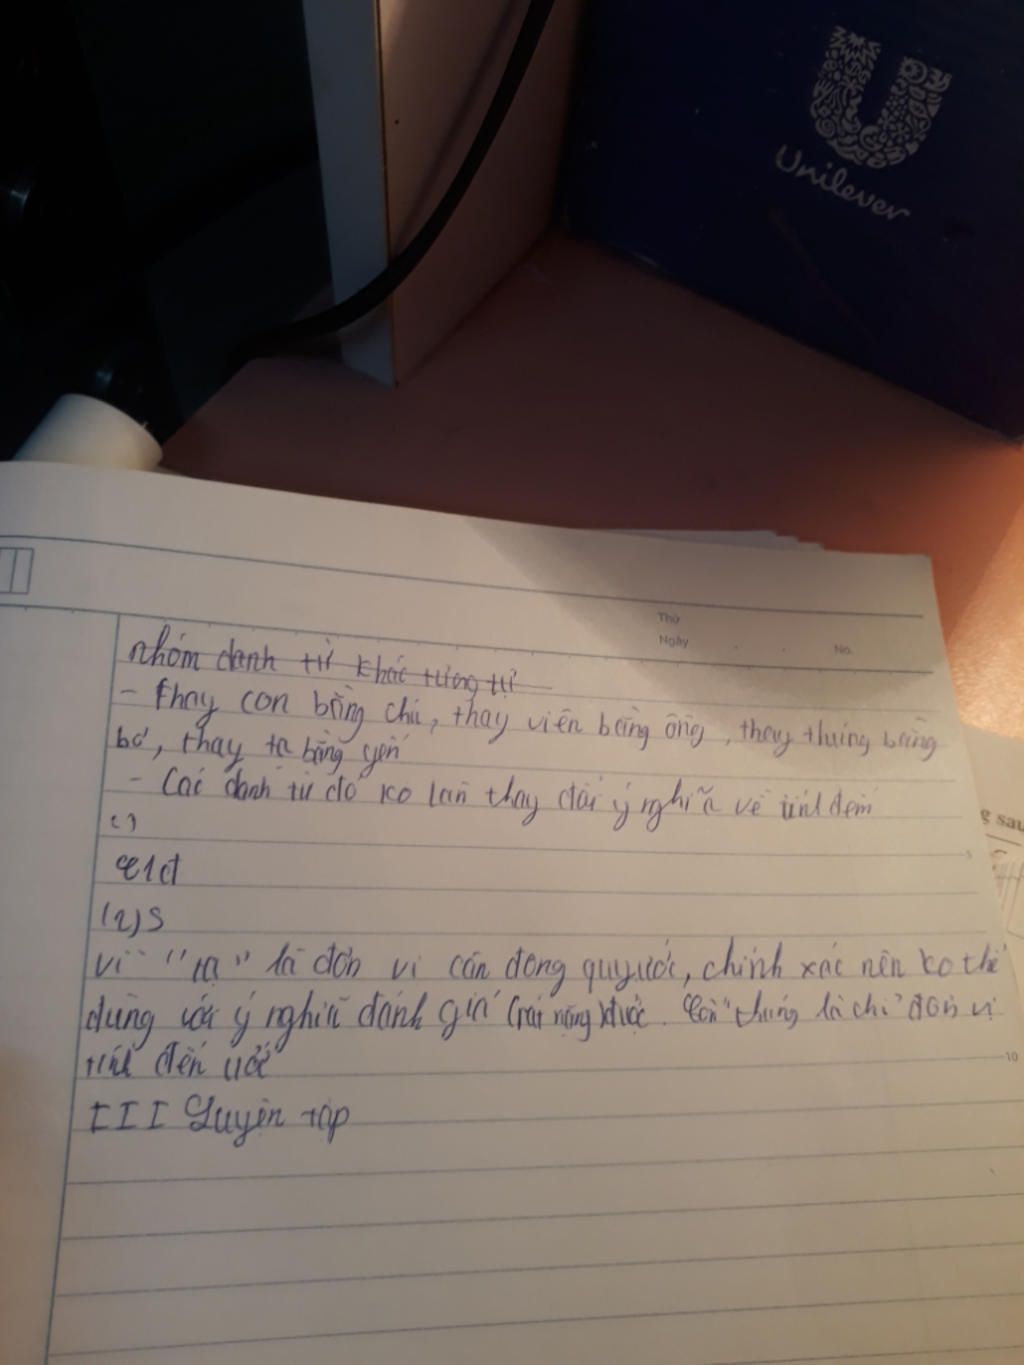 Unilever
Thứ
Ngày . . No.
nhóm danh từ khác tương tự
- thay con bằng chú, thay viên bằng ông, thay thúng bằng
bơ, thay tạ bằng yến
- Các danh từ đó ko làm thay đổi ý nghĩa về tính đếm
g sau
(2)
vì "tạ" là đơn vị cân đong quy ước, chính xác nên ko thể
dùng với ý nghĩa đánh giá (rất nặng) được. Còn "thúng là chỉ" đơn vị
tính đến ước
III Luyện tập
5
10